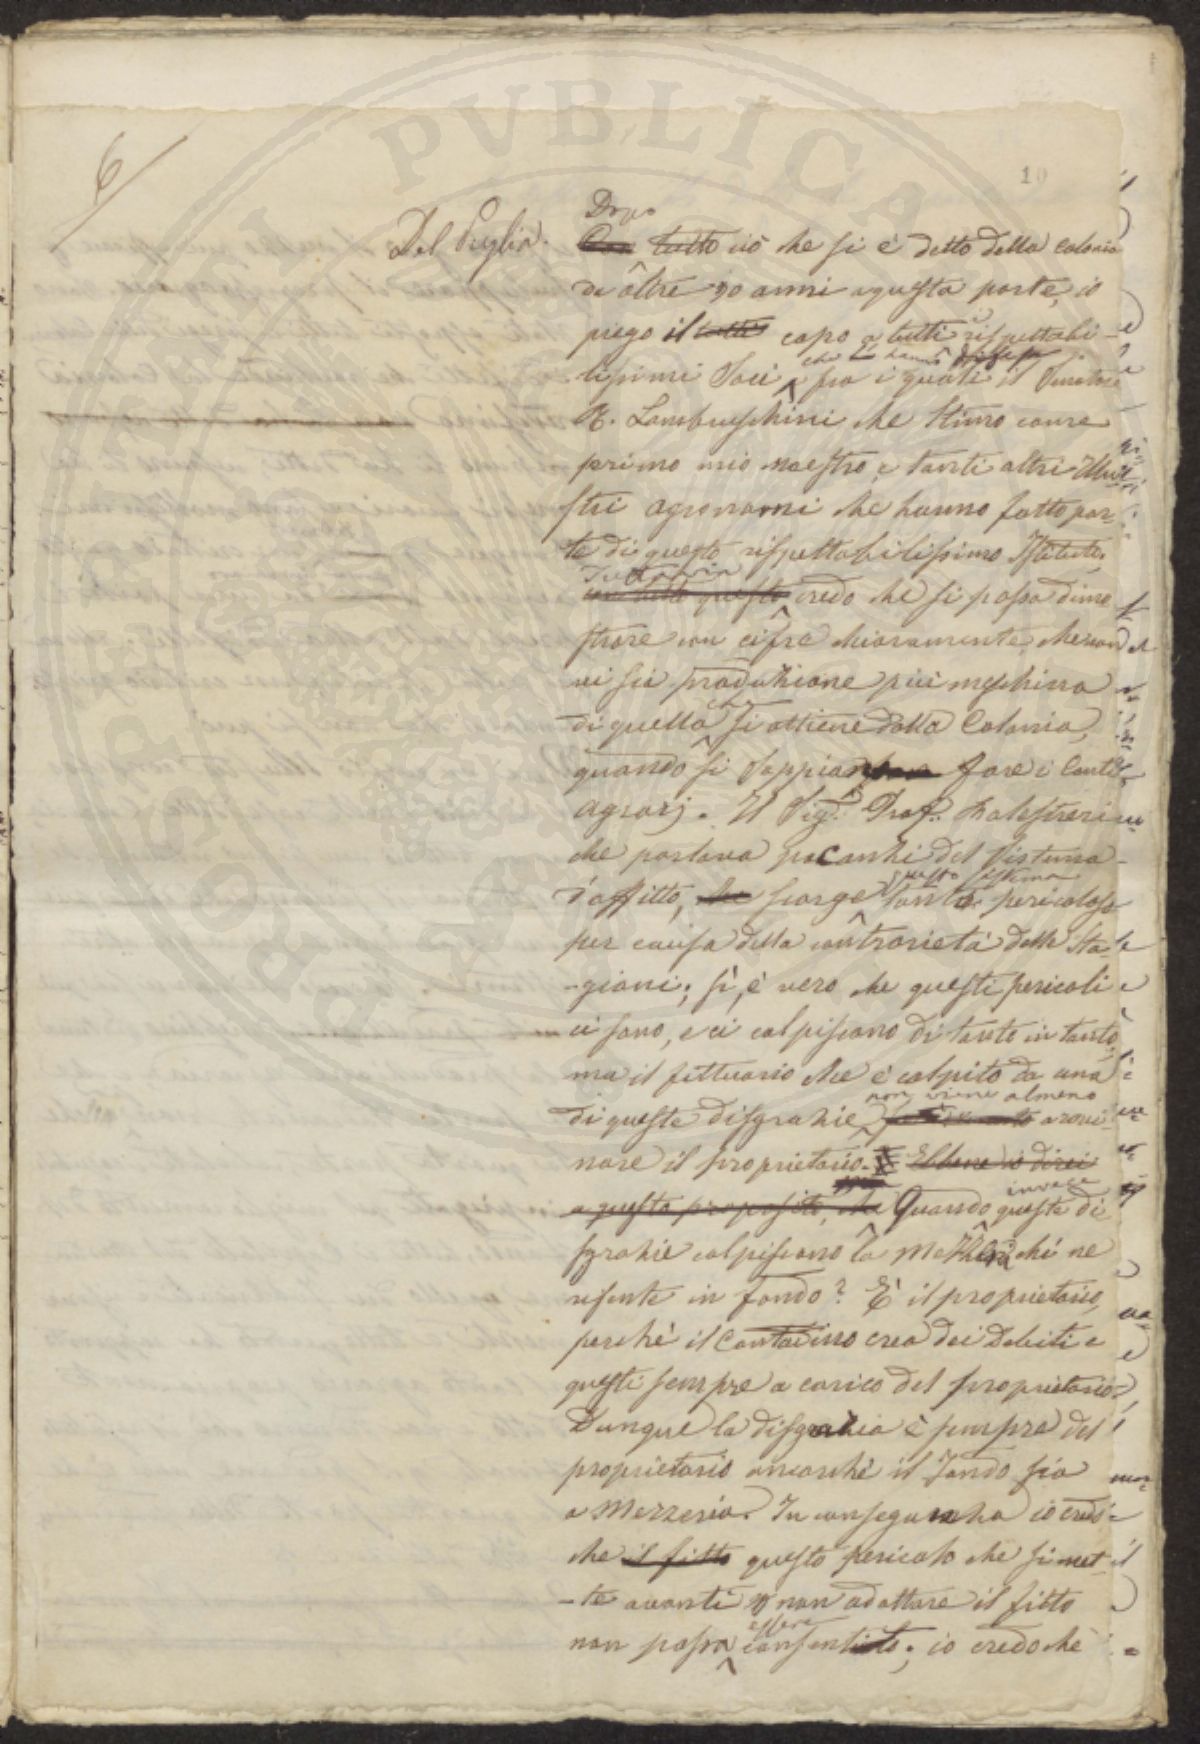 6
10
Del Puglia.
Dopo
Con tutto ciò che si è detto della Colonia
da oltre 90 anni a questa parte, io
piego il tutti capo a tutti i rispettabi-
lissimi Soci che hanno difesa fra i quali il Senatore
R. Lambruschini che stimo come
primo mio maestro, e tanti altri Illu-
stri agronomi che hanno fatto par-
te di questo rispettabilissimo Istituto,
Tuttavia
con tutto questo credo che si possa dimo
strare con cifre chiaramente che non
vi sia produzione più meschina
di quella che si ottiene dalla Colonia,
quando si sappian fare i Conti
agrarj. Il Sig.r Prof. Balestreri
che parlava pocanzi del Sistema
d'affitto, che scorge questo sistema tanto pericoloso
per causa della contrarietà delle Sta-
-gioni; sì, è vero che questi pericoli
ci sono, e ci colpiscono di tanto in tanto,
ma il fittuario che è colpito da una
di queste disgrazie non viene almeno arovi-
nare il proprietario. Ebbene io direi
a questo proposito, che Quando invece queste di
sgrazie colpiscono la Mezzeria chi ne
risente in fondo? È il proprietario,
perchè il Contadino crea dei Debiti e
questi sempre a carico del proprietario.
Dunque la disgrazia è sempre del
proprietario ancorchè il fondo sia
a Mezzeria. In conseguenza io credo
che il fitto questo pericolo che si met-
-te avanti non adottare il fitto
non possa essere consentito; io credo che